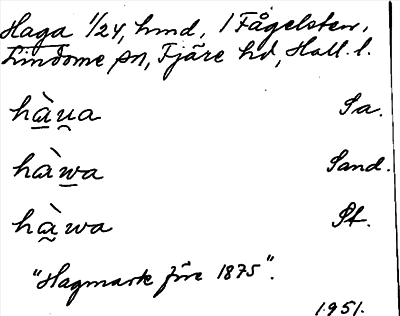 Haga 1/24, hmd, i Fågelsten,
Lindome sn, Fjäre hd, Hall. l.
hàu̯a Sa.
hàwa Sand.
hàwa St.
"Hagmark före 1875".
1951.